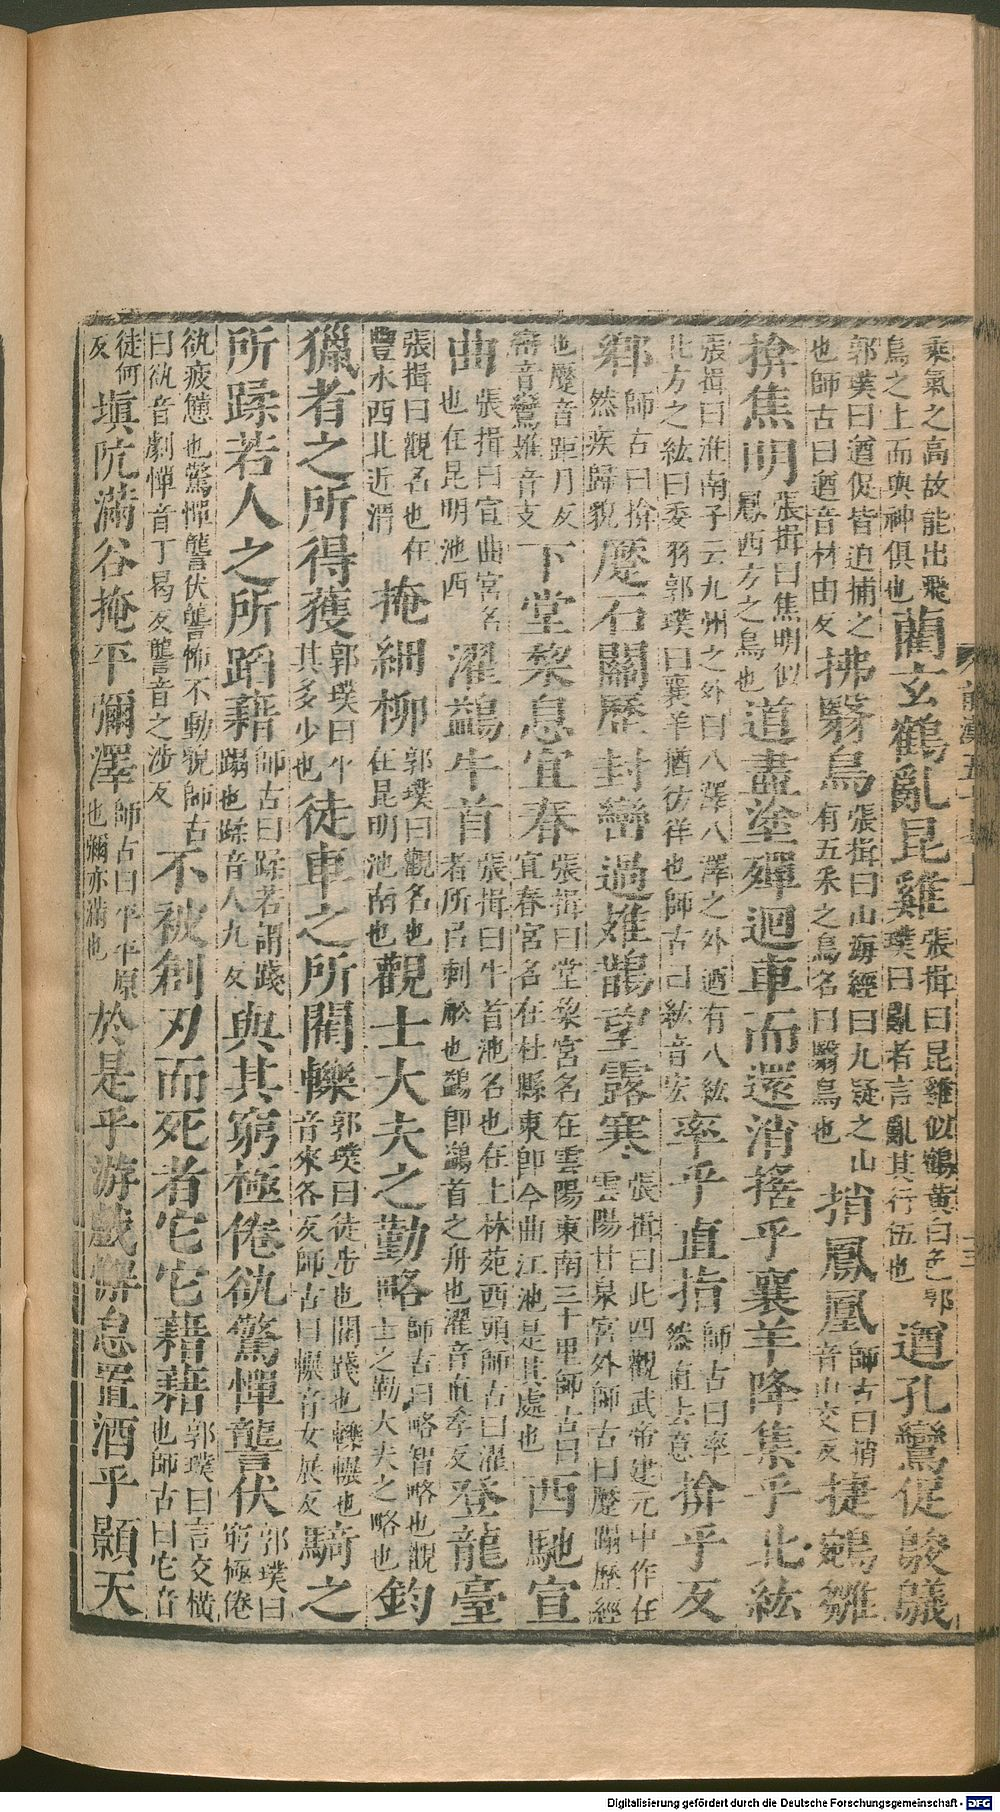 乘氣之高故能出飛鳥之上而與神俱也藺玄鶴亂昆雞張揖曰昆雞似鶴黃白色郭璞曰亂者言亂其行伍也遒孔鸞促鵔鸃
郭璞曰遒促皆迫捕之也師古曰遒音材由反拂翳鳥張揖曰山海經曰九疑之山有五釆之鳥名曰翳鳥也捎鳳凰師古曰捎音山交反捷鵷雛
揜焦明張揖曰焦明似鳳西方之鳥也道盡塗殫迴車而還消搖乎襄羊降集乎北紘
張揖曰淮南子云九州之外曰八澤八澤之外迺有八紘北方之紘曰委羽郭璞曰襄羊猶彷徉也師古曰紘音宏率乎直指師古曰率然直去意揜乎反
鄉師古曰揜然疾歸貌蹷石關歷封巒過䧿鵲望露寒張揖曰此四觀武帝建元中作在雲陽甘泉宮外師古曰蹷蹋歷經
也蹷音距月反巒音鸞䧿音支下堂棃息宜春張揖曰堂棃宮名在雲陽東南三十里師古曰宜春宮名在杜縣東卽今曲江池是其處也西馳宣
曲張揖曰宣曲宮名也在昆明池西濯鷁牛首張揖曰牛首池名也在上林苑西頭師古曰濯者所㠯刺船也鷁卽鷁首之舟也濯音直孝反登龍臺
張揖曰觀名也在豐水西北近渭掩細柳郭璞曰觀名也在昆明池南也觀士大夫之勤略師古曰略智略也觀士之勤大夫之略也鈞
獵者之所得獲郭璞曰平其多少也徒車之所閵轢郭璞曰徒步也閵踐也轢輾也音來各反師古曰輾音女展反騎之
所蹂若人之所蹈藉師古曰蹂若謂踐蹋也蹂音人九反與其窮極倦㕁驚憚讋伏郭璞曰窮極倦
㕁疲憊也驚憚讋伏讋怖不動貌師古曰㕁音劇憚音丁曷反讋音之涉反不被創刃而死者它它藉藉郭璞曰言交橫也師古曰它音
徒何反塡阬滿谷掩平彌澤師古曰平平原也彌亦滿也於是乎游戲懈怠置酒乎顥天
Digitalisierung gefördert durch die Deutsche Forschungsgemeinschaft - DFG